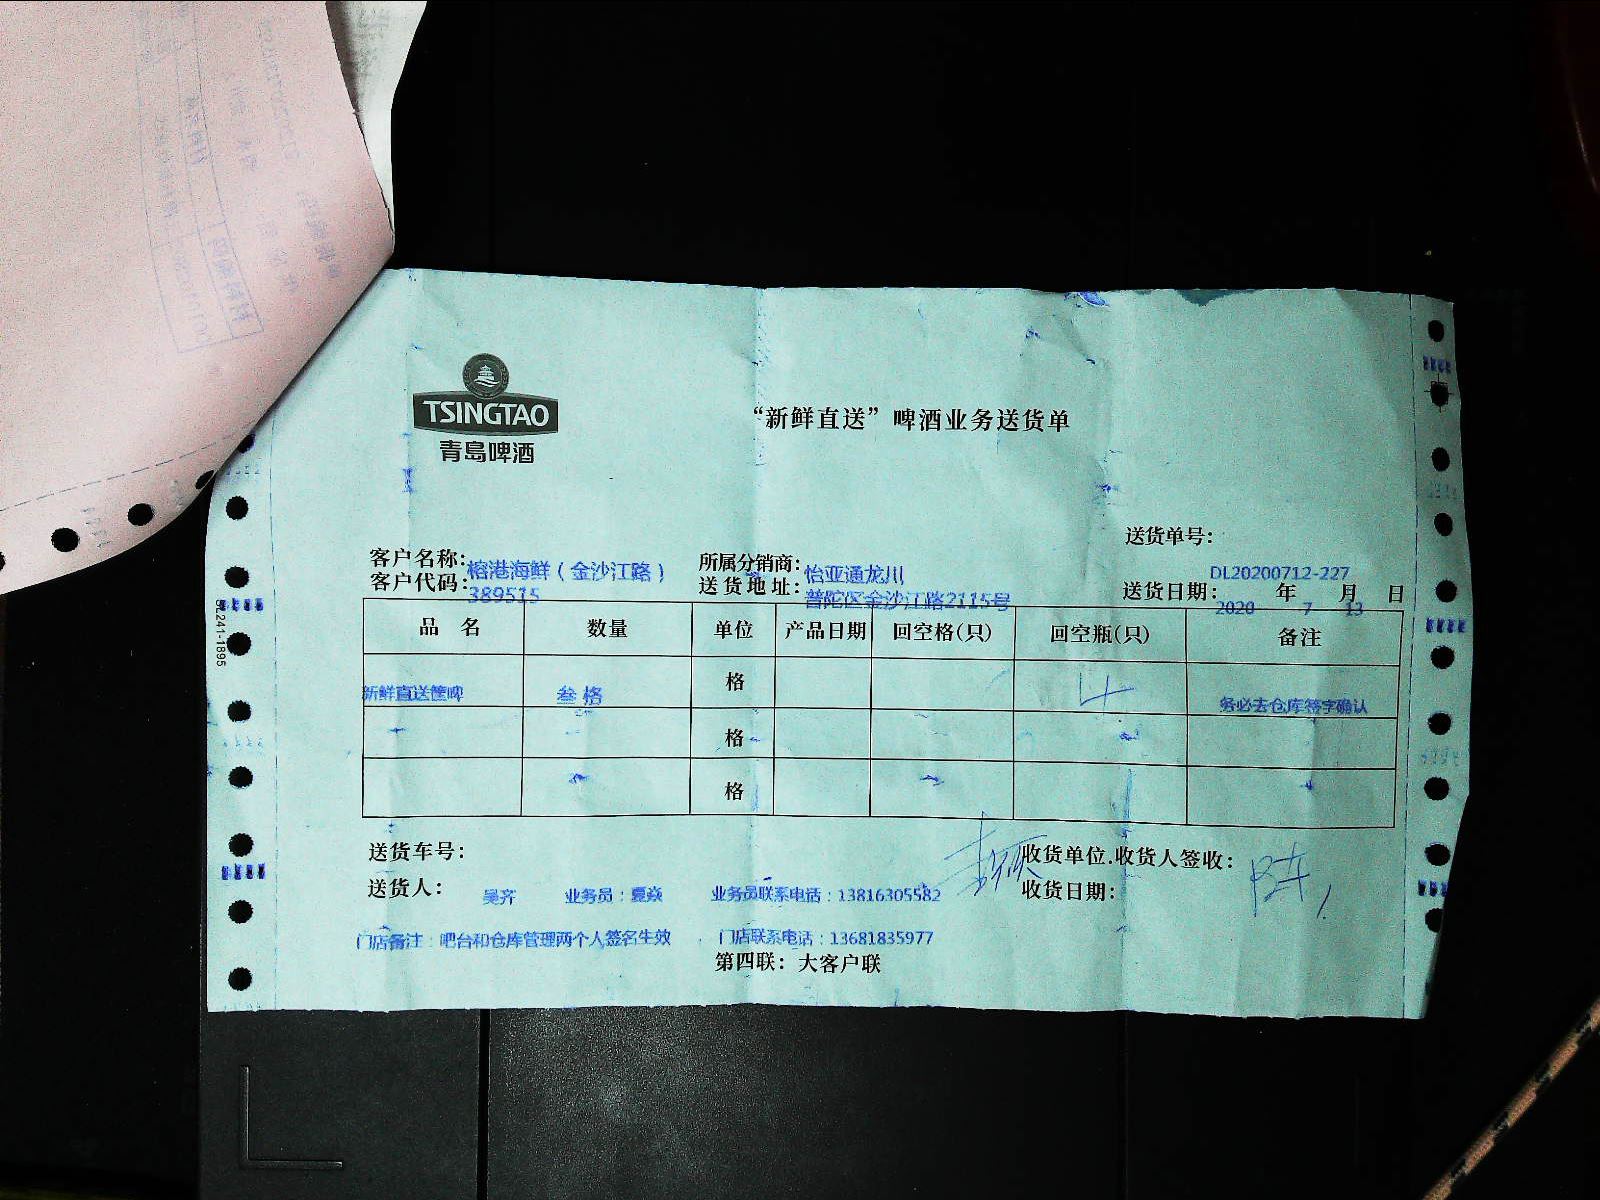 TSINGTAO
青岛啤酒
“新鲜直送”啤酒业务送货单
送货单号: DL20200712-227
客户名称: 榕港海鲜（金沙江路） 所属分销商: 怡亚通龙川
客户代码: 389515 送货地址: 普陀区金沙江路2115号 送货日期: 2020 年 7 月 13 日
品 名 数量 单位 产品日期 回空格(只) 回空瓶(只) 备注
新鲜直送筐啤 叁 格 格 4 务必去仓库签字确认
格
格
送货车号: 收货单位.收货人签收:
送货人: 吴齐 业务员：夏焱 业务员联系电话：13816305582 收货日期:
门店备注：吧台和仓库管理两个人签名生效 ， 门店联系电话：13681835977
第四联：大客户联
SL241-1895